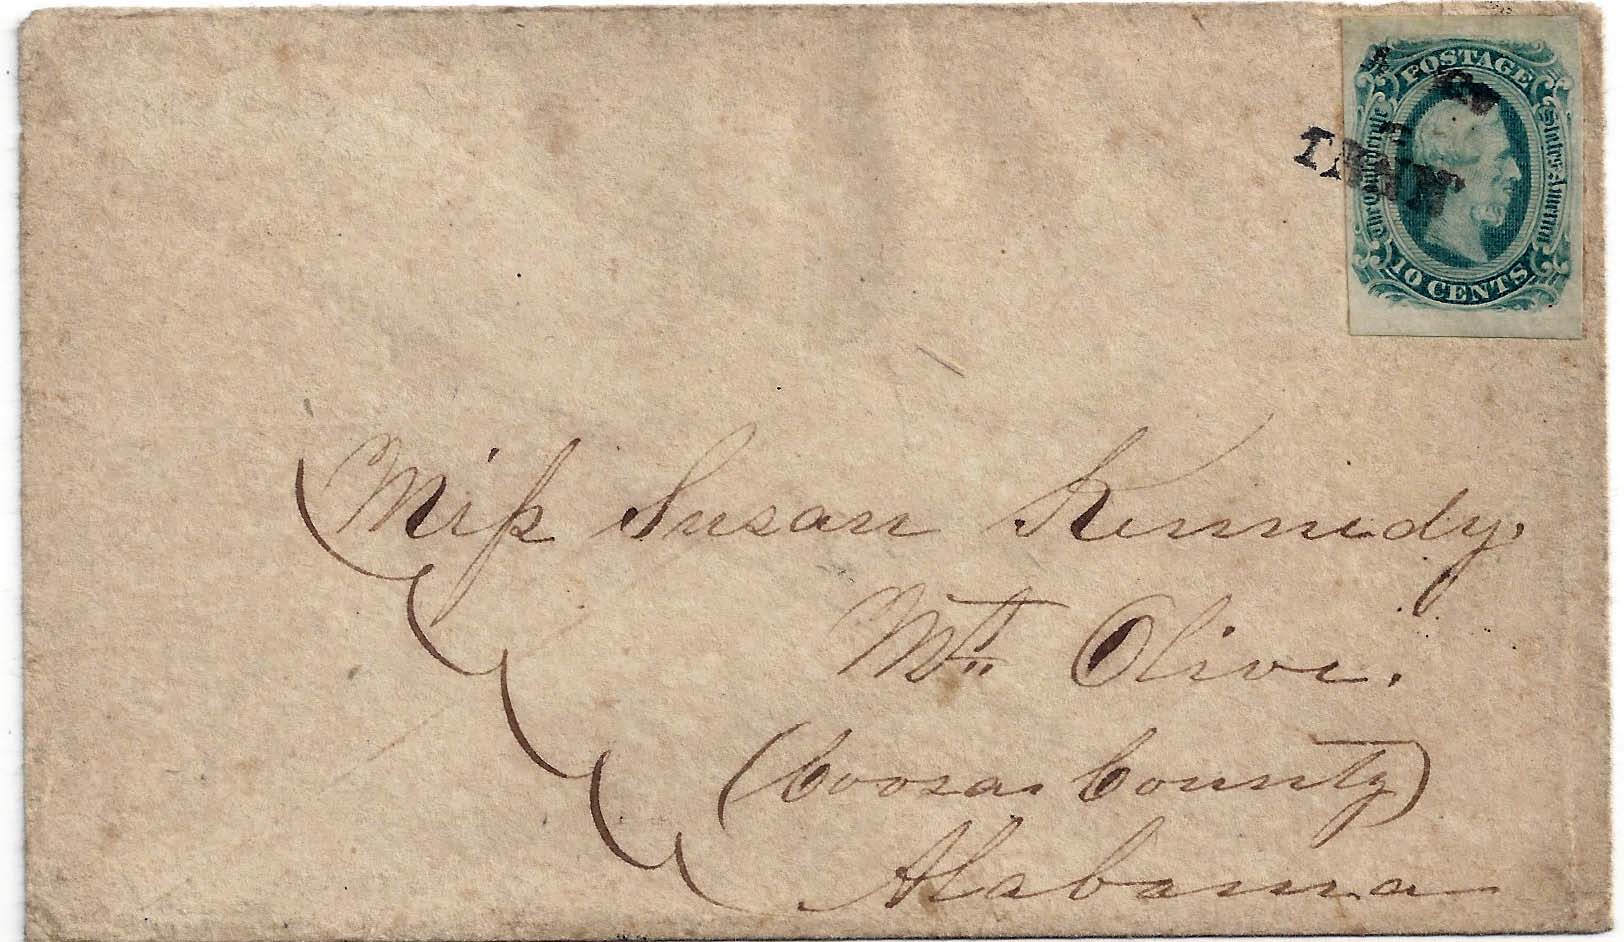 POSTAGE
The Confederate States of America
10 CENTS
Miss Susan Kennedy,
Mt. Olive.
(Coosa County)
Alabama